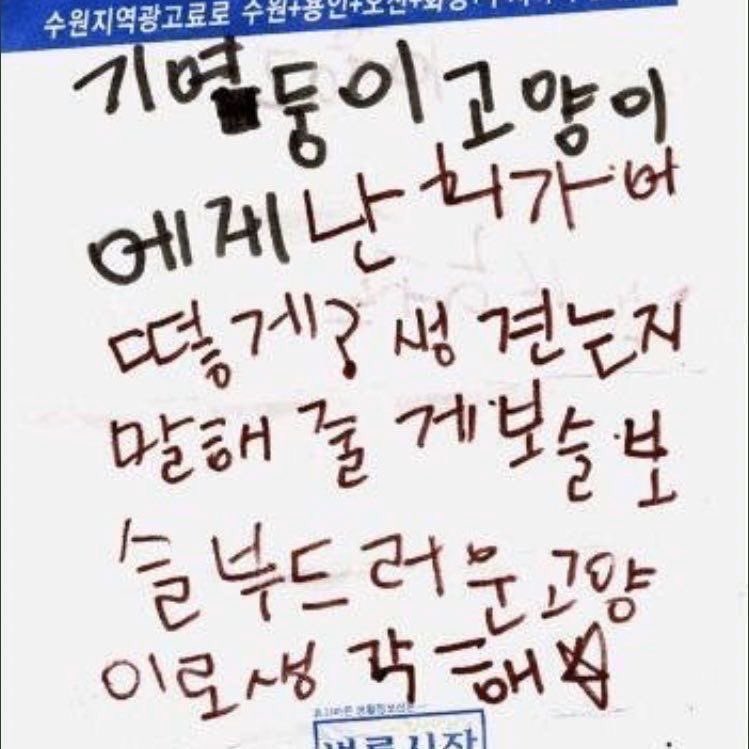 수원지역광고료로 수원+용인+오산+화성+
기염둥이고양이
에게난 희가어
떻게? 생견는지
말해줄게보슬보
슬부드러운고양
이로생각해☆
벼룩시장